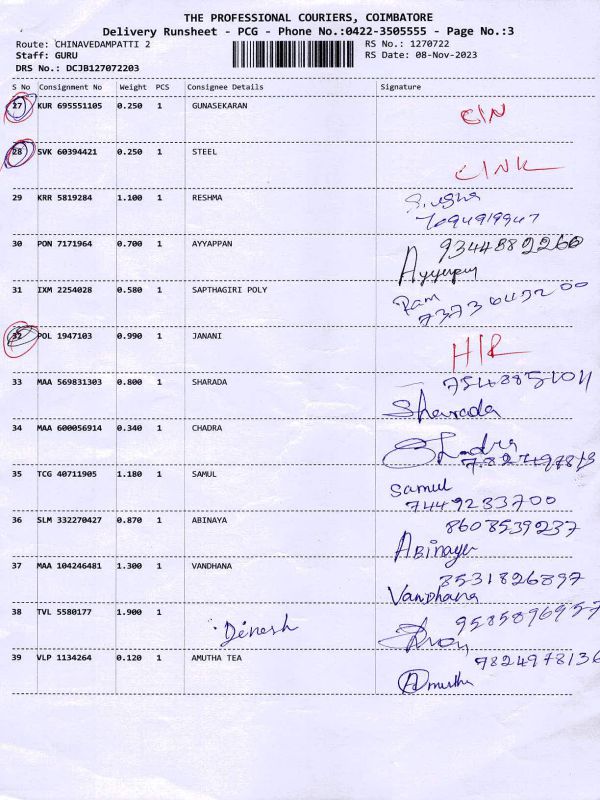 THE PROFESSIONAL COURIERS, COIMBATORE
Delivery Runsheet - PCG - Phone No.:0422-3505555 - Page No.:3
Route: CHINAVEDAMPATTI 2
RS No.: 1270722
Staff: GURU
RS Date: 08-Nov-2023
DRS No.: DCJB127072203
S No Consignment No Weight PCS Consignee Details Signature
27 KUR 695551105 0.250 1 GUNASEKARAN
28 SVK 60394421 0.250 1 STEEL
29 KRR 5819284 1.100 1 RESHMA
30 PON 7171964 0.700 1 AYYAPPAN 9344882260
31 IXM 2254028 0.580 1 SAPTHAGIRI POLY Ram
32 POL 1947103 0.990 1 JANANI
33 MAA 569831303 0.800 1 SHARADA
Sharada
34 MAA 600056914 0.340 1 CHADRA
35 TCG 40711905 1.180 1 SAMUL Samul
7449233700
36 SLM 332270427 0.870 1 ABINAYA 8608539237
Abinaya
37 MAA 104246481 1.300 1 VANDHANA 8531826897
Vandhana
38 TVL 5580177 1.900 1
Dinesh
39 VLP 1134264 0.120 1 AMUTHA TEA 7824978136
Amutha